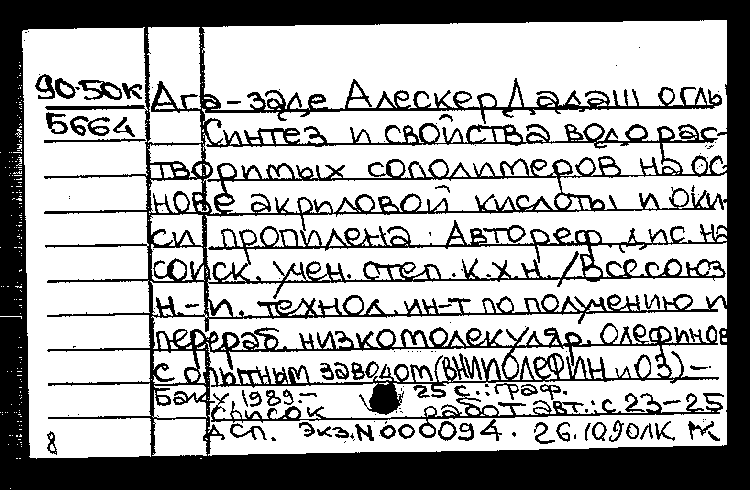 90-50К
5664
Ага-заде Алескер Дадаш оглы
Синтез и свойства водорас-
творимых сополимеров на ос-
нове акриловой кислоты и оки-
си пропилена: Автореф. дис. на
соиск. учен. степ. к.х.н. /Всесоюз.
н.-и. технол. ин-т по получению и
перераб. низкомолекуляр. олефинов
с опытным заводом (ВНИПОЛЕФИН и ОЗ).-
Баку, 1989.- 25 с.: граф.
Список работ авт.: с 23-25
ДСП. Экз. N 000094.
8